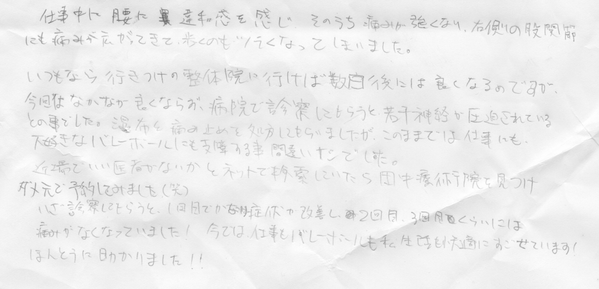 仕事中に腰に違和感を感じ そのうち痛みが強くなり、右側の股関節
にも痛みが広がってきて、歩くのもツラくなってしまいました。
いつもなら行きつけの整体院に行けば数日後には良くなるのですが、
今回はなかなか良くならず、病院で診察してもらうと若干神経が圧迫されている
との事でした。湿布と痛み止めを処方してもらいましたが、このままでは仕事にも、
大好きなバレーボールにも支障する事間違いナシでした。
近場でいい医者がないかとネットで検索していたら田中療術院を見つけ
ダメ元で予約してみました(笑)
いざ診察してもらうと、1回目でかなり症状が改善し、2回目、3回目くらいには
痛みがなくなっていました! 今では仕事もバレーボールも私生活も快適にすごせています!
ほんとうに助かりました!!